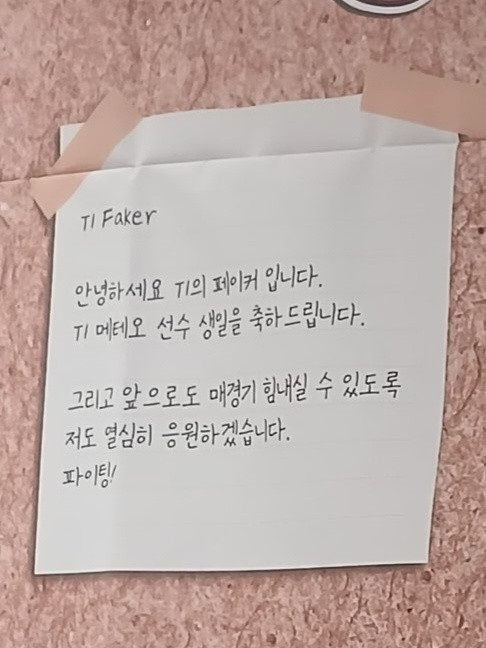 T1 Faker
안녕하세요 T1의 페이커 입니다.
T1 메테오 선수 생일을 축하드립니다.
그리고 앞으로도 매경기 힘내실 수 있도록
저도 열심히 응원하겠습니다.
파이팅!